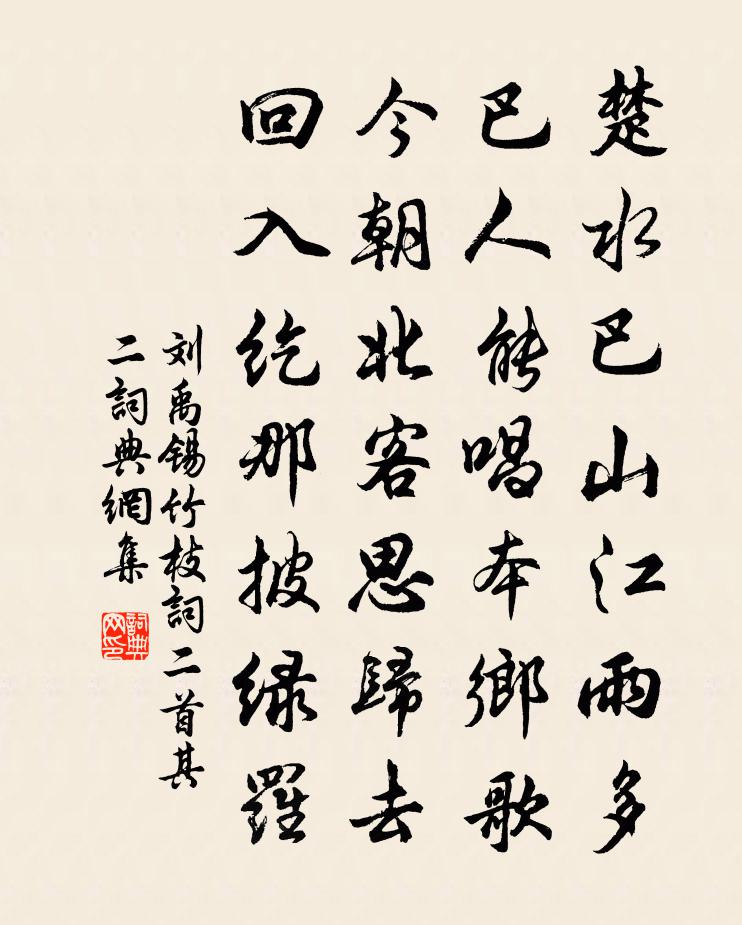 楚水巴山江雨多
巴人能唱本鄉歌
今朝北客思歸去
回入紇那披緑羅
刘禹锡竹枝詞二首其
二詞典網集
詞典
网印